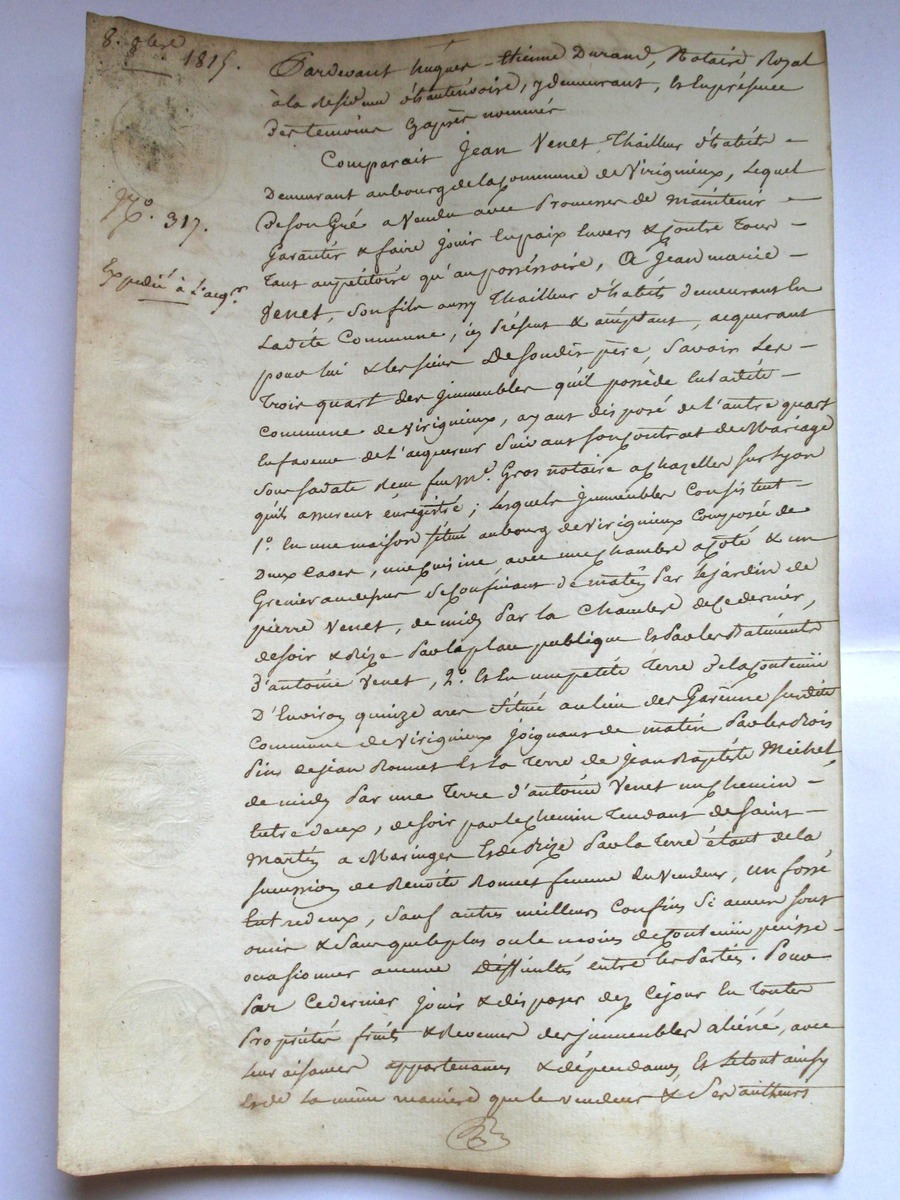 8. 8bre
1815.
N.º 317.
Expedié à l'acqr.
Pardevant hugues-étienne Durand, Notaire Royal
à la residence d'hauterivoire, y demeurant, Et En présence
Des temoins Cyaprès nommés
Comparait Jean Venet Thailleur d'habits -
Demeurant au bourg de la Commune de Virigneux, Lequel
De Son Gré a Vendu avec Promesses de maintenir -
Garantir & faire jouir En paix Envers & Contre Tous -
Tant au pétitoire qu'au posséssoire, à Jean marie -
Venet, Son fils aussy Thailleur d'habits demeurant En
Ladite Commune, icy Présent & acceptant, acquerant
pour lui & les siens Desondit père, Savoir Les -
Trois quart des jmmeubles qu'il possède En Ladite -
Commune de Virigneux, ayant disposé de L'autre quart
En faveur de L'acquereur Suivant Son Contrat de Mariage
Sous Sa date Reçu feu Me. Gros notaire a Chazelles Sur Lyon
qu'ils assurent énregistré; Lesquels jmmeubles Consistent -
1.º En une maison Située au bourg de Virigneux Composée de
Deux Cases, une Cuisine, avec une Chambre a Coté & un
Grenier au dessus Se Confinant De matin Par Le jardin de
pierre Venet, de midy Par la Chambre de Ce dernier,
de soir & Bize Par la place publique Et Par Les Batiments
d'antoine Venet, 2.º Et En une petite Terre De la Contenue
D'Environ quinze ares Située au lieu des Garenne Susdite
Commune de Virigneux Joignant de matin Par les Bois
Pins de jean Bonnet Et La Terre de Jean Baptiste Michel,
de midy Par une Terre d'antoine Venet un Chemin -
Entre deux, de soir par le Chemin Tendant de Saint -
Martin a Maringes Et de Bize Par la Terre étant de la
Sucession de Benoite Bonnet femme du Vendeur, un fossé
Entredeux, Sauf autres meilleurs Confins Si aucuns Sont
omis & Sans que le plus ou le moins de Contenue puisse -
ocasionner aucune Difficultés entre les Parties. Pour
Par Ce dernier Jouir & disposer dez Cejour En Toutes
Propriétés fruits & Revenus des jmmeubles aliéné, avec
Leur aisances appartenances & dépendances, Et Le tout ainsy
Et de La même manière que le Vendeur & Ses autheurs